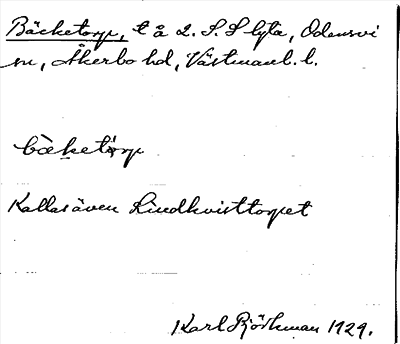 Bäcketorp, t å 2. S. Slyta, Odensvi
sn, Åkerbo hd, Västmanl. l.
bæ̀ketɔrp
Kallas även Lindkvisttorpet
Karl Björkman 1929.